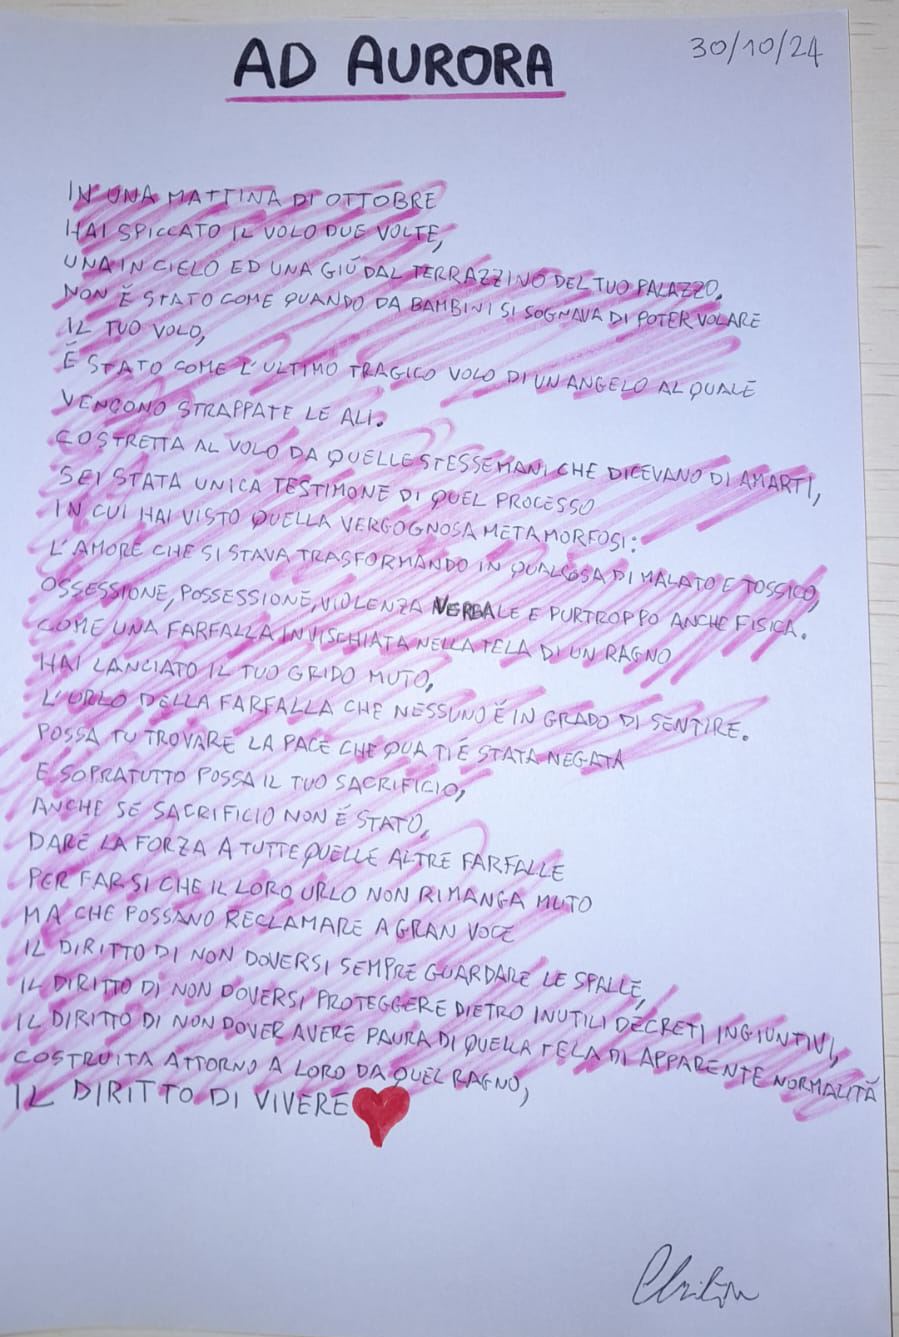 AD AURORA
30/10/24
IN UNA MATTINA DI OTTOBRE
HAI SPICCATO IL VOLO DUE VOLTE,
UNA IN CIELO ED UNA GIÚ DAL TERRAZZINO DEL TUO PALAZZO.
NON É STATO COME QUANDO DA BAMBINI SI SOGNAVA DI POTER VOLARE
IL TUO VOLO,
É STATO COME L'ULTIMO TRAGICO VOLO DI UN ANGELO AL QUALE
VENGONO STRAPPATE LE ALI.
COSTRETTA AL VOLO DA QUELLE STESSE MANI CHE DICEVANO DI AMARTI,
SEI STATA UNICA TESTIMONE DI QUEL PROCESSO
IN CUI HAI VISTO QUELLA VERGOGNOSA METAMORFOSI:
L'AMORE CHE SI STAVA TRASFORMANDO IN QUALCOSA DI MALATO E TOSSICO,
OSSESSIONE, POSSESSIONE, VIOLENZA VERBALE E PURTROPPO ANCHE FISICA.
COME UNA FARFALLA INVISCHIATA NELLA TELA DI UN RAGNO
HAI LANCIATO IL TUO GRIDO MUTO,
L'URLO DELLA FARFALLA CHE NESSUNO É IN GRADO DI SENTIRE.
POSSA TU TROVARE LA PACE CHE QUA TI É STATA NEGATA
E SOPRATUTTO POSSA IL TUO SACRIFICIO,
ANCHE SE SACRIFICIO NON É STATO,
DARE LA FORZA A TUTTE QUELLE ALTRE FARFALLE
PER FAR SI CHE IL LORO URLO NON RIMANGA MUTO
MA CHE POSSANO RECLAMARE A GRAN VOCE
IL DIRITTO DI NON DOVERSI SEMPRE GUARDARE LE SPALLE,
IL DIRITTO DI NON DOVERSI PROTEGGERE DIETRO INUTILI DECRETI INGIUNTIVI,
IL DIRITTO DI NON DOVER AVERE PAURA DI QUELLA TELA DI APPARENTE NORMALITÁ
COSTRUITA ATTORNO A LORO DA QUEL RAGNO,
IL DIRITTO DI VIVERE